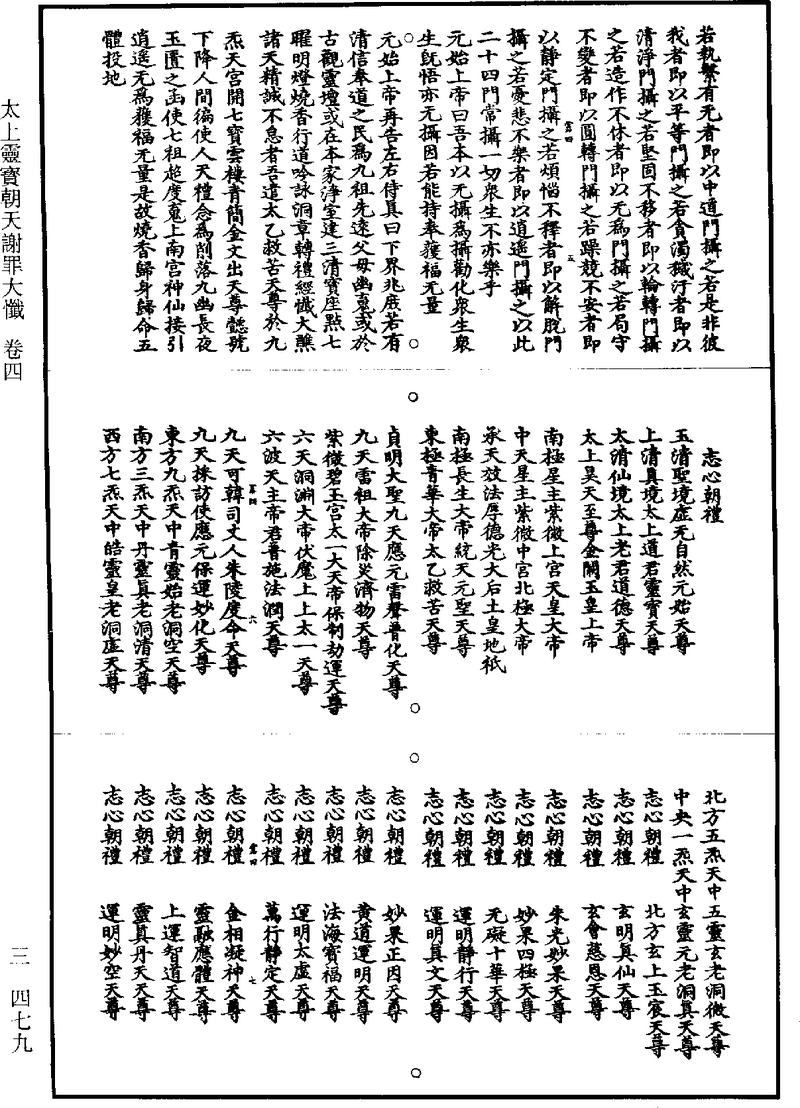 太上靈寶朝天謝罪大懺 卷四
三 四七九
若執繫有无者即以中道門攝之若是非彼
我者即以平等門攝之若貪濁穢汙者即以
清淨門攝之若堅固不移者即以輪轉門攝
之若造作不休者即以无為門攝之若局守
不變者即以圓轉門攝之若躁競不安者即
以靜定門攝之若煩惱不釋者即以解脫門
攝之若憂悲不樂者即以逍遙門攝之以此
二十四門常攝一切衆生不亦樂乎
元始上帝曰吾本以无攝為攝勸化衆生衆
生旣悟亦无攝因若能持奉獲福无量
元始上帝再告左右侍真曰下界兆庶若有
清信奉道之民為九祖先遠父母幽䰟或於
古觀靈壇或在本家淨室建三清寶座點七
曜明燈燒香行道吟詠洞章轉禮經懺大醮
諸天精誠不怠者吾遣太乙救苦天尊於九
炁天宮開七寶雲樓青簡金文出天尊聽號
下降人間徧使人天禮念為削落九幽長夜
玉匱之函使七祖超度䰟上南宮神仙接引
逍遙无為獲福无量是故燒香歸身歸命五
體投地
志心朝禮
玉清聖境虛无自然元始天尊
上清真境太上道君靈寶天尊
太清仙境太上老君道德天尊
太上昊天至尊金闕玉皇上帝
南極星主紫微上宮天皇大帝
中天星主紫微中宮北極大帝
承天效法厚德光大后土皇地祇
南極長生大帝統天元聖天尊
東極青華大帝太乙救苦天尊
貞明大聖九天應元雷聲普化天尊
九天雷祖大帝除災濟物天尊
紫微碧玉宮太一大天帝保制劫運天尊
六天洞淵大帝伏魔上上太一天尊
六波天主帝君普施法潤天尊
九天可韓司丈人朱陵度命天尊
九天採訪使應元保運妙化天尊
東方九炁天中青靈始老洞空天尊
南方三炁天中丹靈真老洞清天尊
西方七炁天中皓靈皇老洞虛天尊
北方五炁天中五靈玄老洞微天尊
中央一炁天中玄靈元老洞真天尊
志心朝禮 北方玄上玉宸天尊
志心朝禮 玄明真仙天尊
志心朝禮 玄會慈恩天尊
志心朝禮 朱光妙果天尊
志心朝禮 妙果四極天尊
志心朝禮 无礙十華天尊
志心朝禮 運明靜行天尊
志心朝禮 運明真文天尊
志心朝禮 妙果正因天尊
志心朝禮 黃道運明天尊
志心朝禮 法海寶福天尊
志心朝禮 運明太虛天尊
志心朝禮 萬行靜定天尊
志心朝禮 金相凝神天尊
志心朝禮 靈融應體天尊
志心朝禮 上運智道天尊
志心朝禮 靈真丹天天尊
志心朝禮 運明妙空天尊